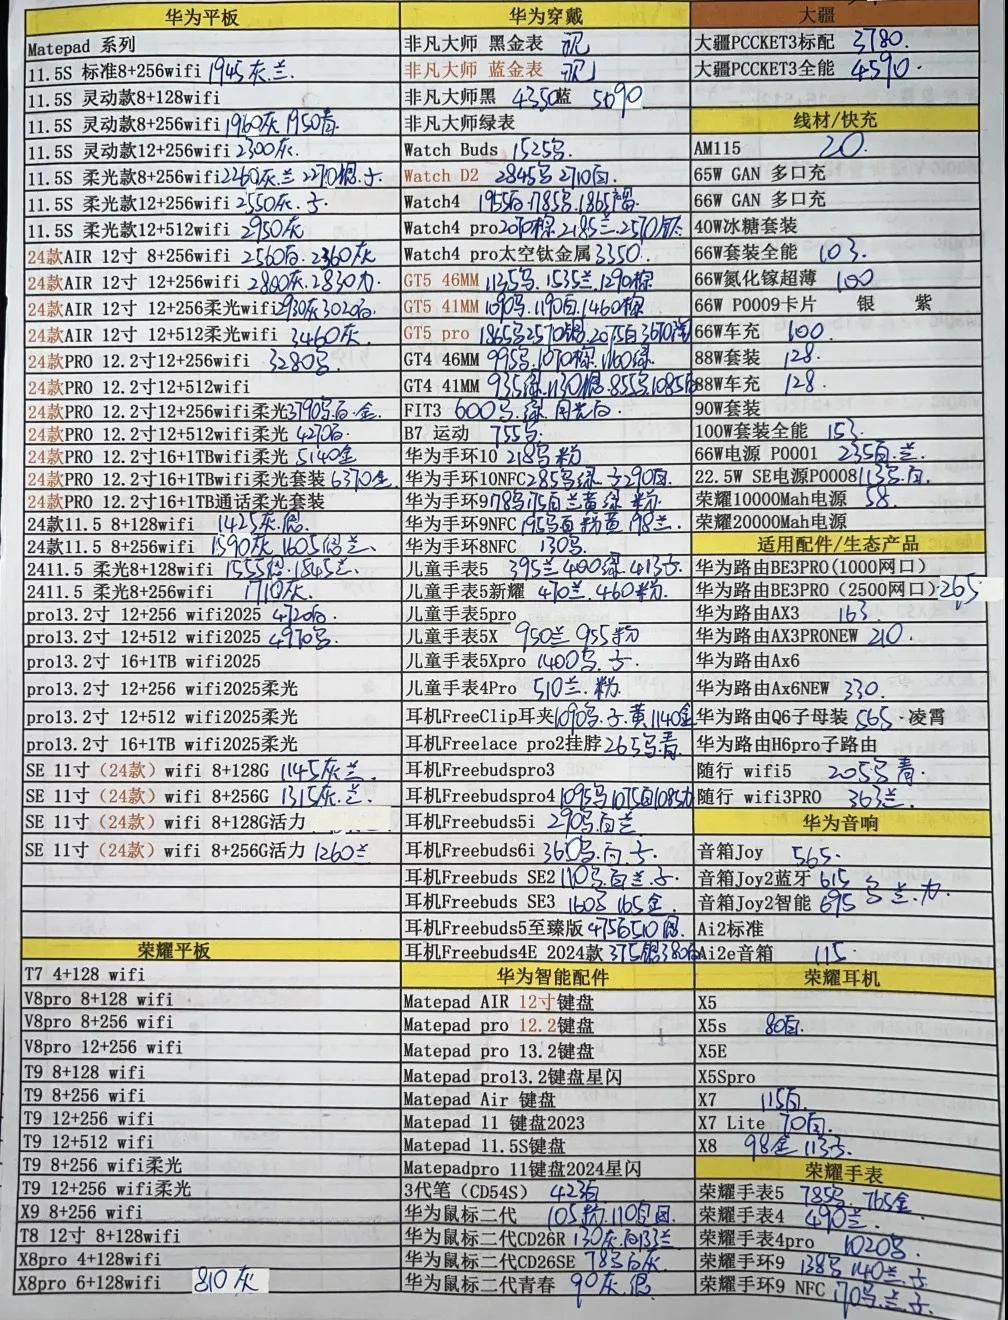 华为平板
Matepad 系列
11.5S 标准8+256wifi 1945灰.兰.
11.5S 灵动款8+128wifi
11.5S 灵动款8+256wifi 1960灰 1950青
11.5S 灵动款12+256wifi 2300灰.
11.5S 柔光款8+256wifi 2260灰.兰 2270
11.5S 柔光款12+256wifi 2550灰.子
11.5S 柔光款12+512wifi 2950灰
24款AIR 12寸 8+256wifi 2560白. 2360灰
24款AIR 12寸 12+256wifi 2800灰.2830力.
24款AIR 12寸 12+256柔光wifi 2930灰3020白.
24款AIR 12寸 12+512柔光wifi 3460灰.
24款PRO 12.2寸12+256wifi 3280
24款PRO 12.2寸12+512wifi
24款PRO 12.2寸12+256wifi柔光 3790 白.金.
24款PRO 12.2寸12+512wifi柔光 4270白.
24款PRO 12.2寸16+1TBwifi柔光 5140金
24款PRO 12.2寸16+1TBwifi柔光套装 6370金
24款PRO 12.2寸16+1TB通话柔光套装
24款11.5 8+128wifi 1425灰.
24款11.5 8+256wifi 1590灰 1605 兰.
2411.5 柔光8+128wifi 1555 .1545兰.
2411.5 柔光8+256wifi 1710灰.
pro13.2寸 12+256 wifi2025 4720白.
pro13.2寸 12+512 wifi2025 4970
pro13.2寸 16+1TB wifi2025
pro13.2寸 12+256 wifi2025柔光
pro13.2寸 12+512 wifi2025柔光
pro13.2寸 16+1TB wifi2025柔光
SE 11寸（24款）wifi 8+128G 1145灰兰.
SE 11寸（24款）wifi 8+256G 1315灰.兰.
SE 11寸（24款）wifi 8+128G活力
SE 11寸（24款）wifi 8+256G活力 1260兰
荣耀平板
T7 4+128 wifi
V8pro 8+128 wifi
V8pro 8+256 wifi
V8pro 12+256 wifi
T9 8+128 wifi
T9 8+256 wifi
T9 12+256 wifi
T9 12+512 wifi
T9 8+256 wifi柔光
T9 12+256 wifi柔光
X9 8+256 wifi
T8 12寸 8+128wifi
X8pro 4+128wifi
X8pro 6+128wifi 810灰
华为穿戴
非凡大师 黑金表
非凡大师 蓝金表
非凡大师黑 4350蓝 5090
非凡大师绿表
Watch Buds 1525
Watch D2 2845 2710白.
Watch4 1955 .1785 .1865
Watch4 pro 2070棕.2185兰.2570
Watch4 pro太空钛金属 3350.
GT5 46MM 1135 .1535兰.1290棕
GT5 41MM 1090 .1190白.1460棕
GT5 pro 1865 2570 .2075白3670
GT4 46MM 995 .1070棕.1160绿
GT4 41MM 935绿.1130 .855 .1085白
FIT3 600 .绿.月光白.
B7 运动 755
华为手环10 218 粉
华为手环10NFC 285 绿.子290白.
华为手环9 178 175白兰黄绿.粉
华为手环9NFC 195 白.粉黄.198兰.
华为手环8NFC 130
儿童手表5 395兰.400绿.413子.
儿童手表5新耀 470兰.460粉.
儿童手表5pro
儿童手表5X 950兰955粉
儿童手表5Xpro 1400 .子.
儿童手表4Pro 510兰.粉.
耳机FreeClip耳夹 1090 .子.黄.1140金
耳机Freelace pro2挂脖 265 青
耳机Freebudspro3
耳机Freebudspro4 1095 1075白1085力
耳机Freebuds5i 290 .白兰
耳机Freebuds6i 360 .白.子.
耳机Freebuds SE2 110 .白兰.子.
耳机Freebuds SE3 160 165金.
耳机Freebuds5至臻版 475 510
耳机Freebuds4E 2024款 375 380白
华为智能配件
Matepad AIR 12寸键盘
Matepad pro 12.2键盘
Matepad pro 13.2键盘
Matepad pro13.2键盘星闪
Matepad Air 键盘
Matepad 11 键盘2023
Matepad 11.5S键盘
Matepadpro 11键盘2024星闪
3代笔（CD54S） 423白
华为鼠标二代 105粉.110
华为鼠标二代CD26R 130灰.白133兰
华为鼠标二代CD26SE 78 白灰.
华为鼠标二代青春 90灰.
大疆
大疆PCCKET3标配 3780.
大疆PCCKET3全能 4590.
线材/快充
AM115 20.
65W GAN 多口充
66W GAN 多口充
40W冰糖套装
66W套装全能 103.
66W氮化镓超薄 100
66W P0009卡片 银 紫
66W车充 100.
88W套装 128.
88W车充 128.
90W套装
100W套装全能 153.
66W电源 P0001 235白.兰.
22.5W SE电源P0008 113 .白.
荣耀10000Mah电源 58.
荣耀20000Mah电源
适用配件/生态产品
华为路由BE3PRO(1000网口)
华为路由BE3PRO (2500网口) 265.
华为路由AX3 163.
华为路由AX3PRONEW 210.
华为路由Ax6
华为路由Ax6NEW 330.
华为路由Q6子母装 565.凌霄
华为路由H6pro子路由
随行 wifi5 205 青.
随行 wifi3PRO 363兰.
华为音响
音箱Joy 565.
音箱Joy2蓝牙 615
音箱Joy2智能 695 兰.力.
Ai2标准
Ai2e音箱 115.
荣耀耳机
X5
X5s 80白.
X5E
X5Spro
X7 115白.
X7 Lite 70白.
X8 98金 113子.
荣耀手表
荣耀手表5 785 . 765金
荣耀手表4 490兰.
荣耀手表4pro 1020
荣耀手环9 138 140兰.子
荣耀手环9 NFC 170 .兰.子.